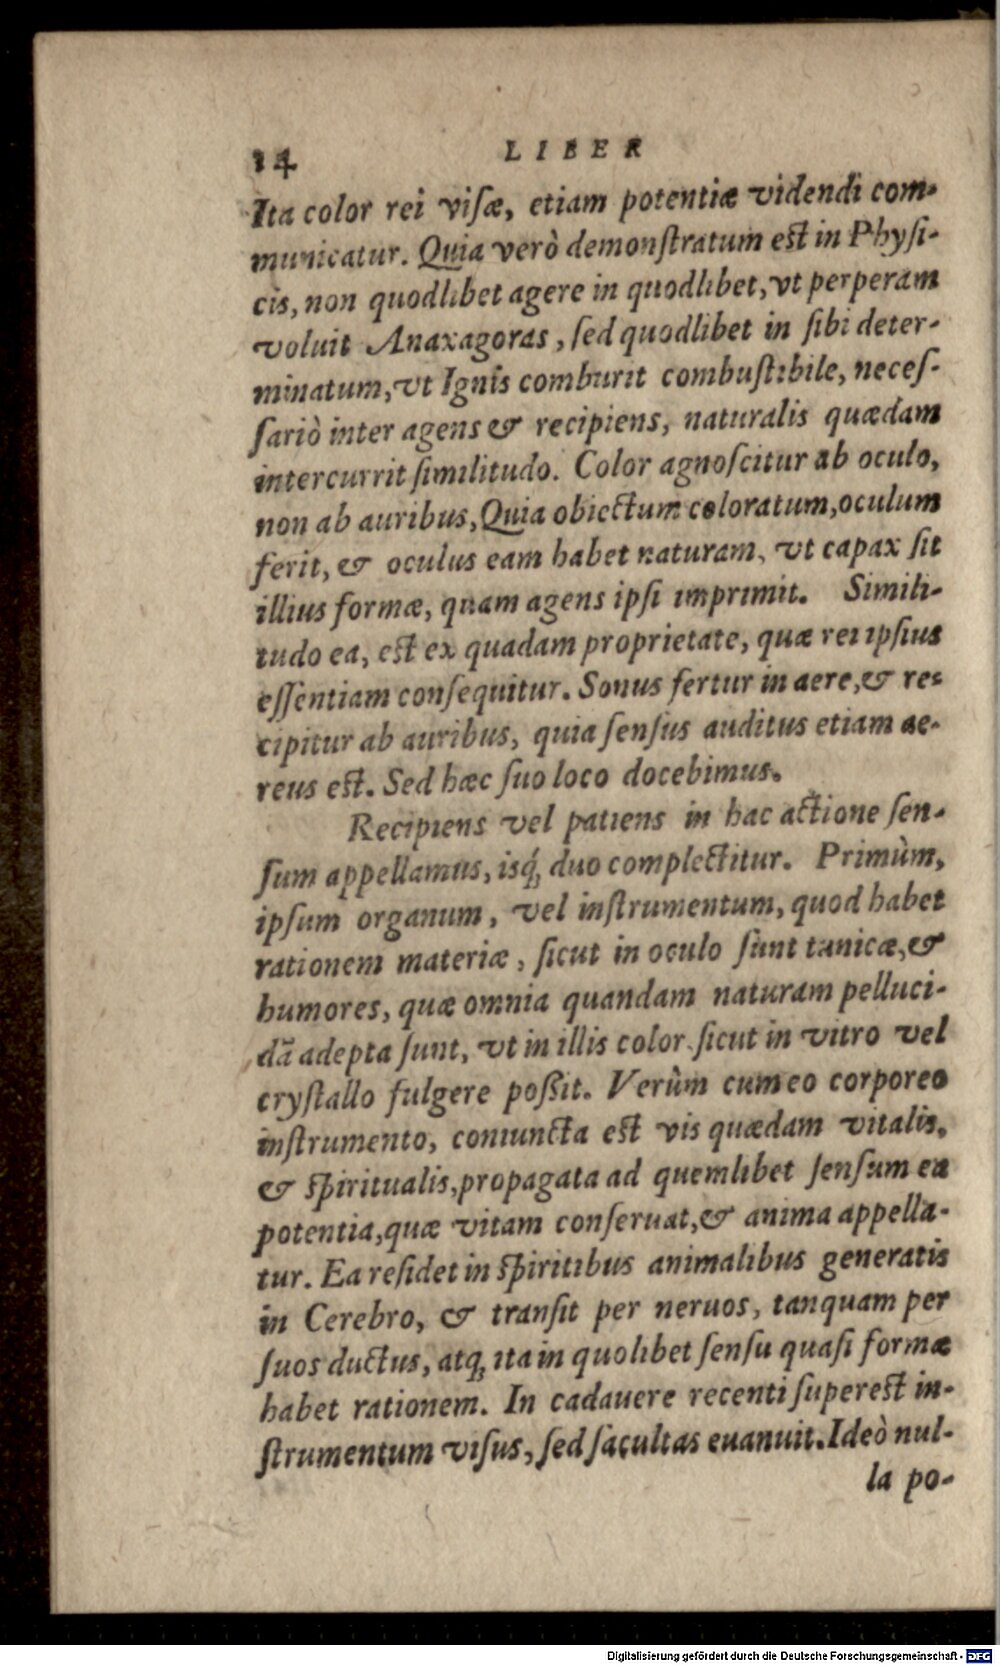 14 LIBER
Ita color rei viſæ, etiam potentiæ videndi com-
municatur. Quia verò demonſtratum eſt in Phyſi-
cis, non quodlibet agere in quodlibet, vt perperam
voluit Anaxagoras, ſed quodlibet in ſibi deter-
minatum, vt Ignis comburit combuſtibile, neceſ-
ſariò inter agens & recipiens, naturalis quædam
intercurrit ſimilitudo. Color agnoſcitur ab oculo,
non ab auribus, Quia obiectum coloratum, oculum
ferit, & oculus eam habet naturam, vt capax ſit
illius formæ, quam agens ipſi imprimit. Simili-
tudo ea, eſt ex quadam proprietate, quæ rei ipſius
eſſentiam conſequitur. Sonus fertur in aere, & re-
cipitur ab auribus, quia ſenſus auditus etiam ae-
reus eſt. Sed hæc ſuo loco docebimus.
Recipiens vel patiens in hac actione ſen-
ſum appellamus, isq́; duo complectitur. Primùm,
ipſum organum, vel inſtrumentum, quod habet
rationem materiæ, ſicut in oculo ſunt tunicæ, &
humores, quæ omnia quandam naturam pelluci-
dã adepta ſunt, vt in illis color ſicut in vitro vel
cryſtallo fulgere poßit. Verùm cum eo corporeo
inſtrumento, coniuncta eſt vis quædam vitalis,
& ſpiritualis, propagata ad quemlibet ſenſum ea
potentia, quæ vitam conſeruat, & anima appella-
tur. Ea reſidet in ſpiritibus animalibus generatis
in Cerebro, & tranſit per neruos, tanquam per
ſuos ductus, atq; ita in quolibet ſenſu quaſi formæ
habet rationem. In cadauere recenti ſupereſt in-
ſtrumentum viſus, ſed facultas euanuit. Ideò nul-
la po-
Digitalisierung gefördert durch die Deutsche Forschungsgemeinschaft - DFG